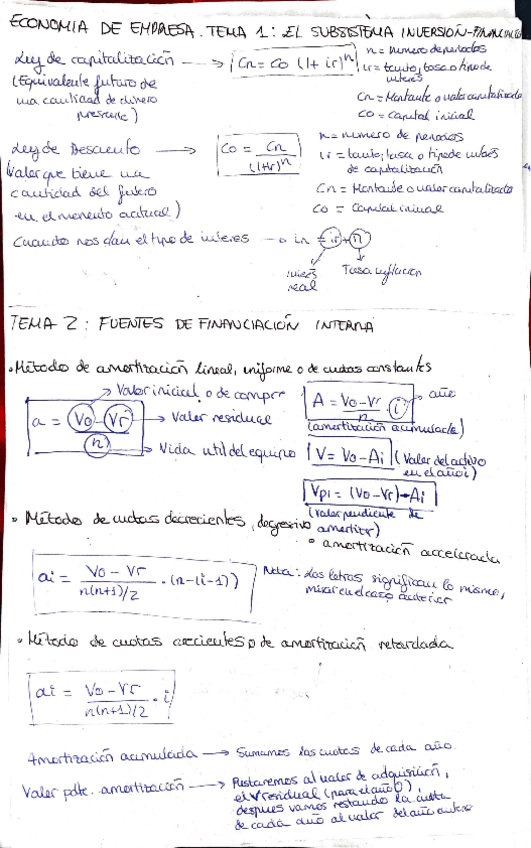 ECONOMIA DE EMPRESA. TEMA 1: EL SUBSISTEMA INVERSIÓN-FINANCIACIÓN
Ley de capitalización → Cn = Co (1+ir)^n
n = número de periodos
ir = tanto, tasa o tipo de interés
(Equivalente futuro de una cantidad de dinero presente)
Cn = Montante o valor capitalizado
Co = Capital inicial
Ley de Descuento → Co = Cn / (1+ir)^n
n = número de periodos
ir = tanto, tasa o tipo de interés de capitalización
(valor que tiene una cantidad del futuro en el momento actual)
Cn = Montante o valor capitalizado
Co = Capital inicial
Cuando nos dan el tipo de interes → in = ir + n
interés real
Tasa inflacion
TEMA 2: FUENTES DE FINANCIACIÓN INTERNA
• Método de amortización lineal, uniforme o de cuotas constantes
a = Vo - Vr / n
→ Valor inicial o de compra
→ Valor residual
→ Vida util del equipo
A = Vo - Vr / n · i → año
(amortización acumulada)
V = Vo - Ai (Valor del activo en el año i)
Vpi = (Vo - Vr) - Ai
(valor pendiente de amortizar)
• Método de cuotas decrecientes, degresivo o amortización accelerada
ai = Vo - Vr / n(n+1)/2 · (n-(i-1))
Nota: Las letras significan lo mismo, mirar en el caso anterior
• Método de cuotas crecientes o de amortización retardada
ai = Vo - Vr / n(n+1)/2 · i
Amortización acumulada → Sumamos las cuotas de cada año.
Valor pdte. amortización → Restaremos al valor de adquisición,
el Vresidual (para el año 0),
despues vamos restando la cuota
de cada año al valor del año anterior